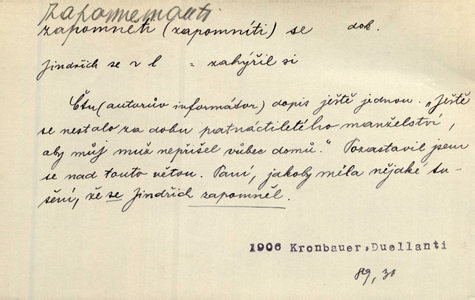 zapomnemouti
zapomněti (zapomníti) se dok.
Jindřich se z l = zahýřil si
Čtu (autorův informátor) dopis ještě jednou. „Ještě
se nestalo za dobu patnáctiletého manželství,
aby můj muž nepřišel vůbec domů.“ Pozastavil jsem
se nad touto větou. Paní, jakoby měla nějaké tu-
šení, že se Jindřich zapomněl.
1906 Kronbauer, Duellanti
89, 31